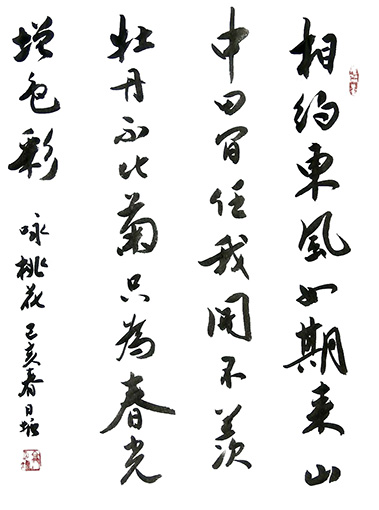 相约東風如期来山
中田间任我開不羡
牡丹不比菊只為春光
增色彩
咏桃花 己亥春日培